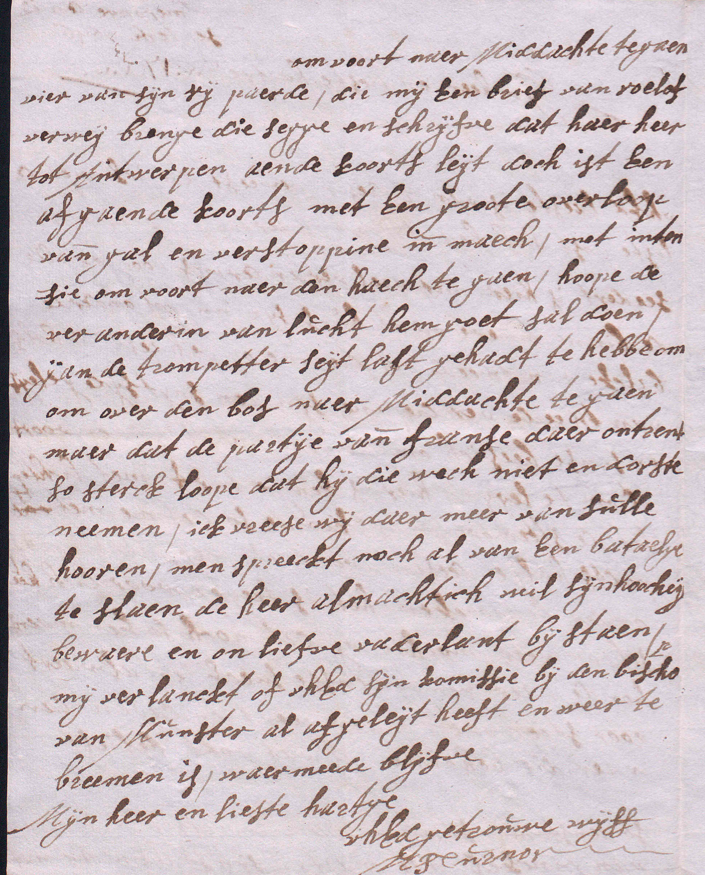 om voort naer Middachte te gaen
vier van syn ry paerde, die my een brief van roelof
verwey brenge die segge en schryfve dat haer heer
tot Antwerpen aende koorts leyt doch ist een
af gaende koorts met een groote overloop
van gal en verstoppine in maech, met inten
sie om voort naer den haech te gaen, hoope de
veranderin van lucht hem goet sal doen,
Jan de trompetter seyt last gehadt te hebbe om
om over den bos naer Middachte te gaen
maer dat de partÿe van franse daer ontrent
so sterck loope dat hy die wech niet en dorste
neemen, ick vreese wy daer meer van sulle
hooren, men spreeckt noch al van een bataelye
te slaen de heer almachtich wil syn hoocheÿ
bewaere en on liefve vaderlant by staen,
my verlanckt of uhEd syn komissie by den bischop
van Munster al afgeleyt heeft en weer te
breemen is, waermeede blyfve
Mijn heer en liefste hartye
uhEd getrouwe wyff